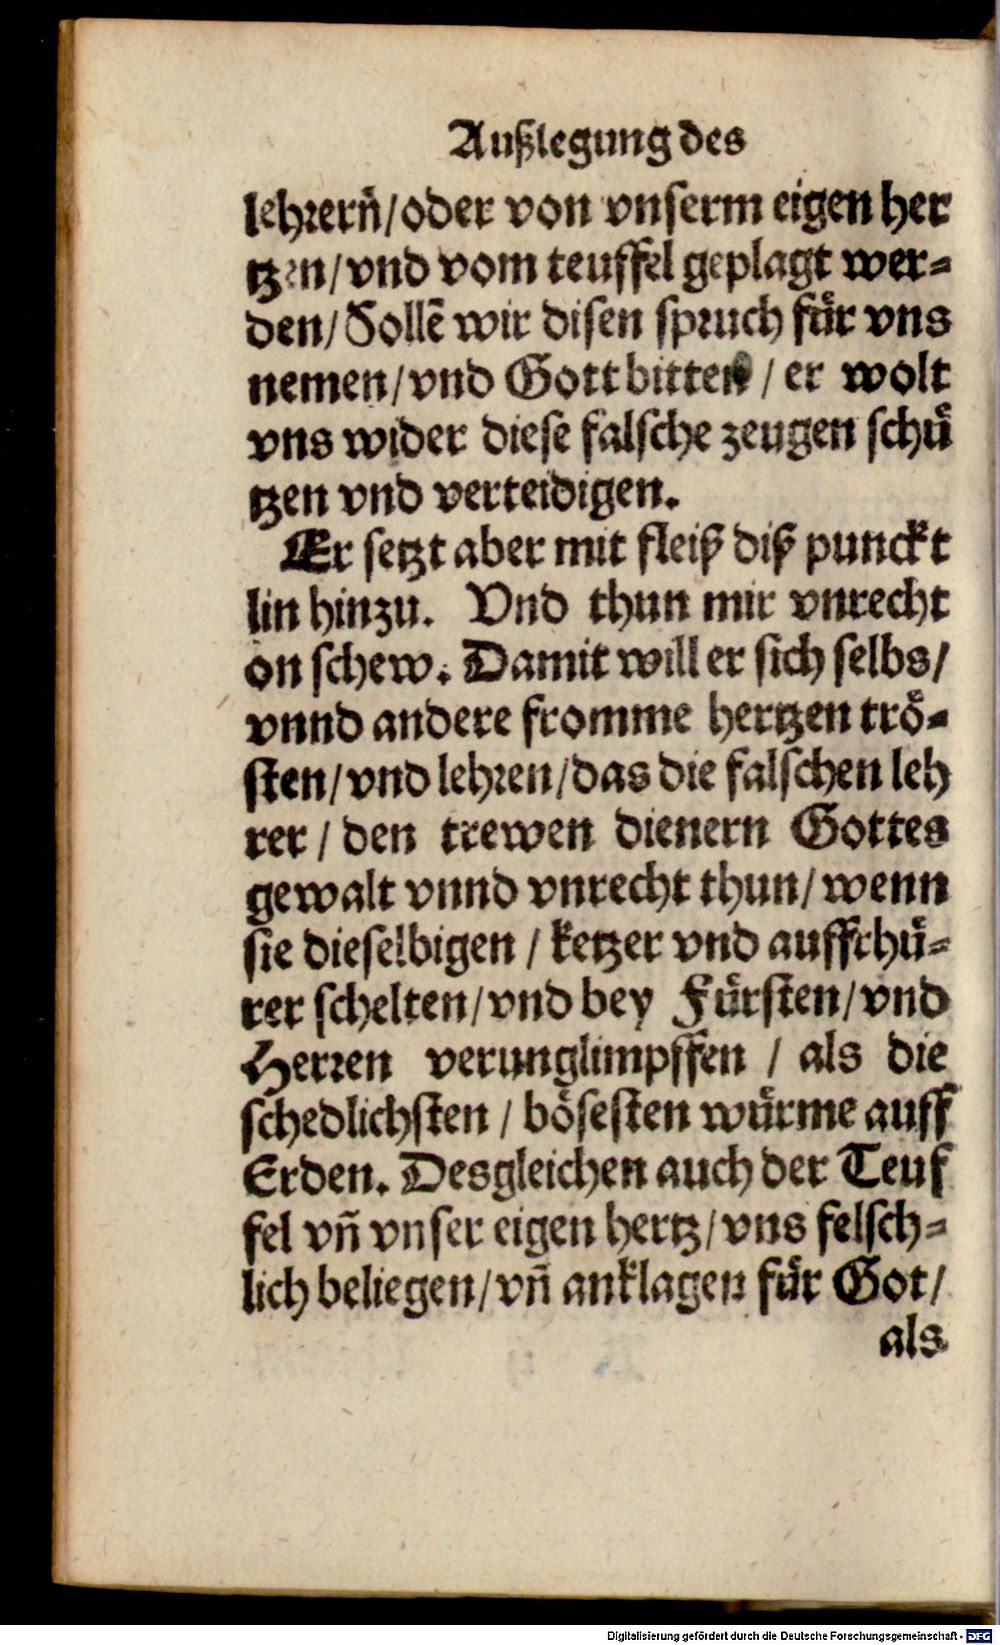 Außlegung des
lehrern̄/oder von vnserm eigen her
tzen/vnd vom teuffel geplagt wer-
den/Sollē wir disen spruch fuͤr vns
nemen/vnd Gott bitten / er wolt
vns wider diese falsche zeugen schuͤ
tzen vnd verteidigen.
Er setzt aber mit fleiß diß punckt
lin hinzu. Vnd thun mir vnrecht
on schew. Damit will er sich selbs/
vnnd andere fromme hertzen troͤ-
sten/vnd lehren/das die falschen leh
rer / den trewen dienern Gottes
gewalt vnnd vnrecht thun/ wenn
sie dieselbigen / ketzer vnd auffrhuͤ-
rer schelten/vnd bey Fuͤrsten/vnd
Herren verunglimpffen / als die
schedlichsten / boͤsesten wuͤrme auff
Erden. Desgleichen auch der Teuf
fel vn̄ vnser eigen hertz/vns felsch-
lich beliegen/vn̄ anklagen fuͤr Got/
als
Digitalisierung gefördert durch die Deutsche Forschungsgemeinschaft - DFG